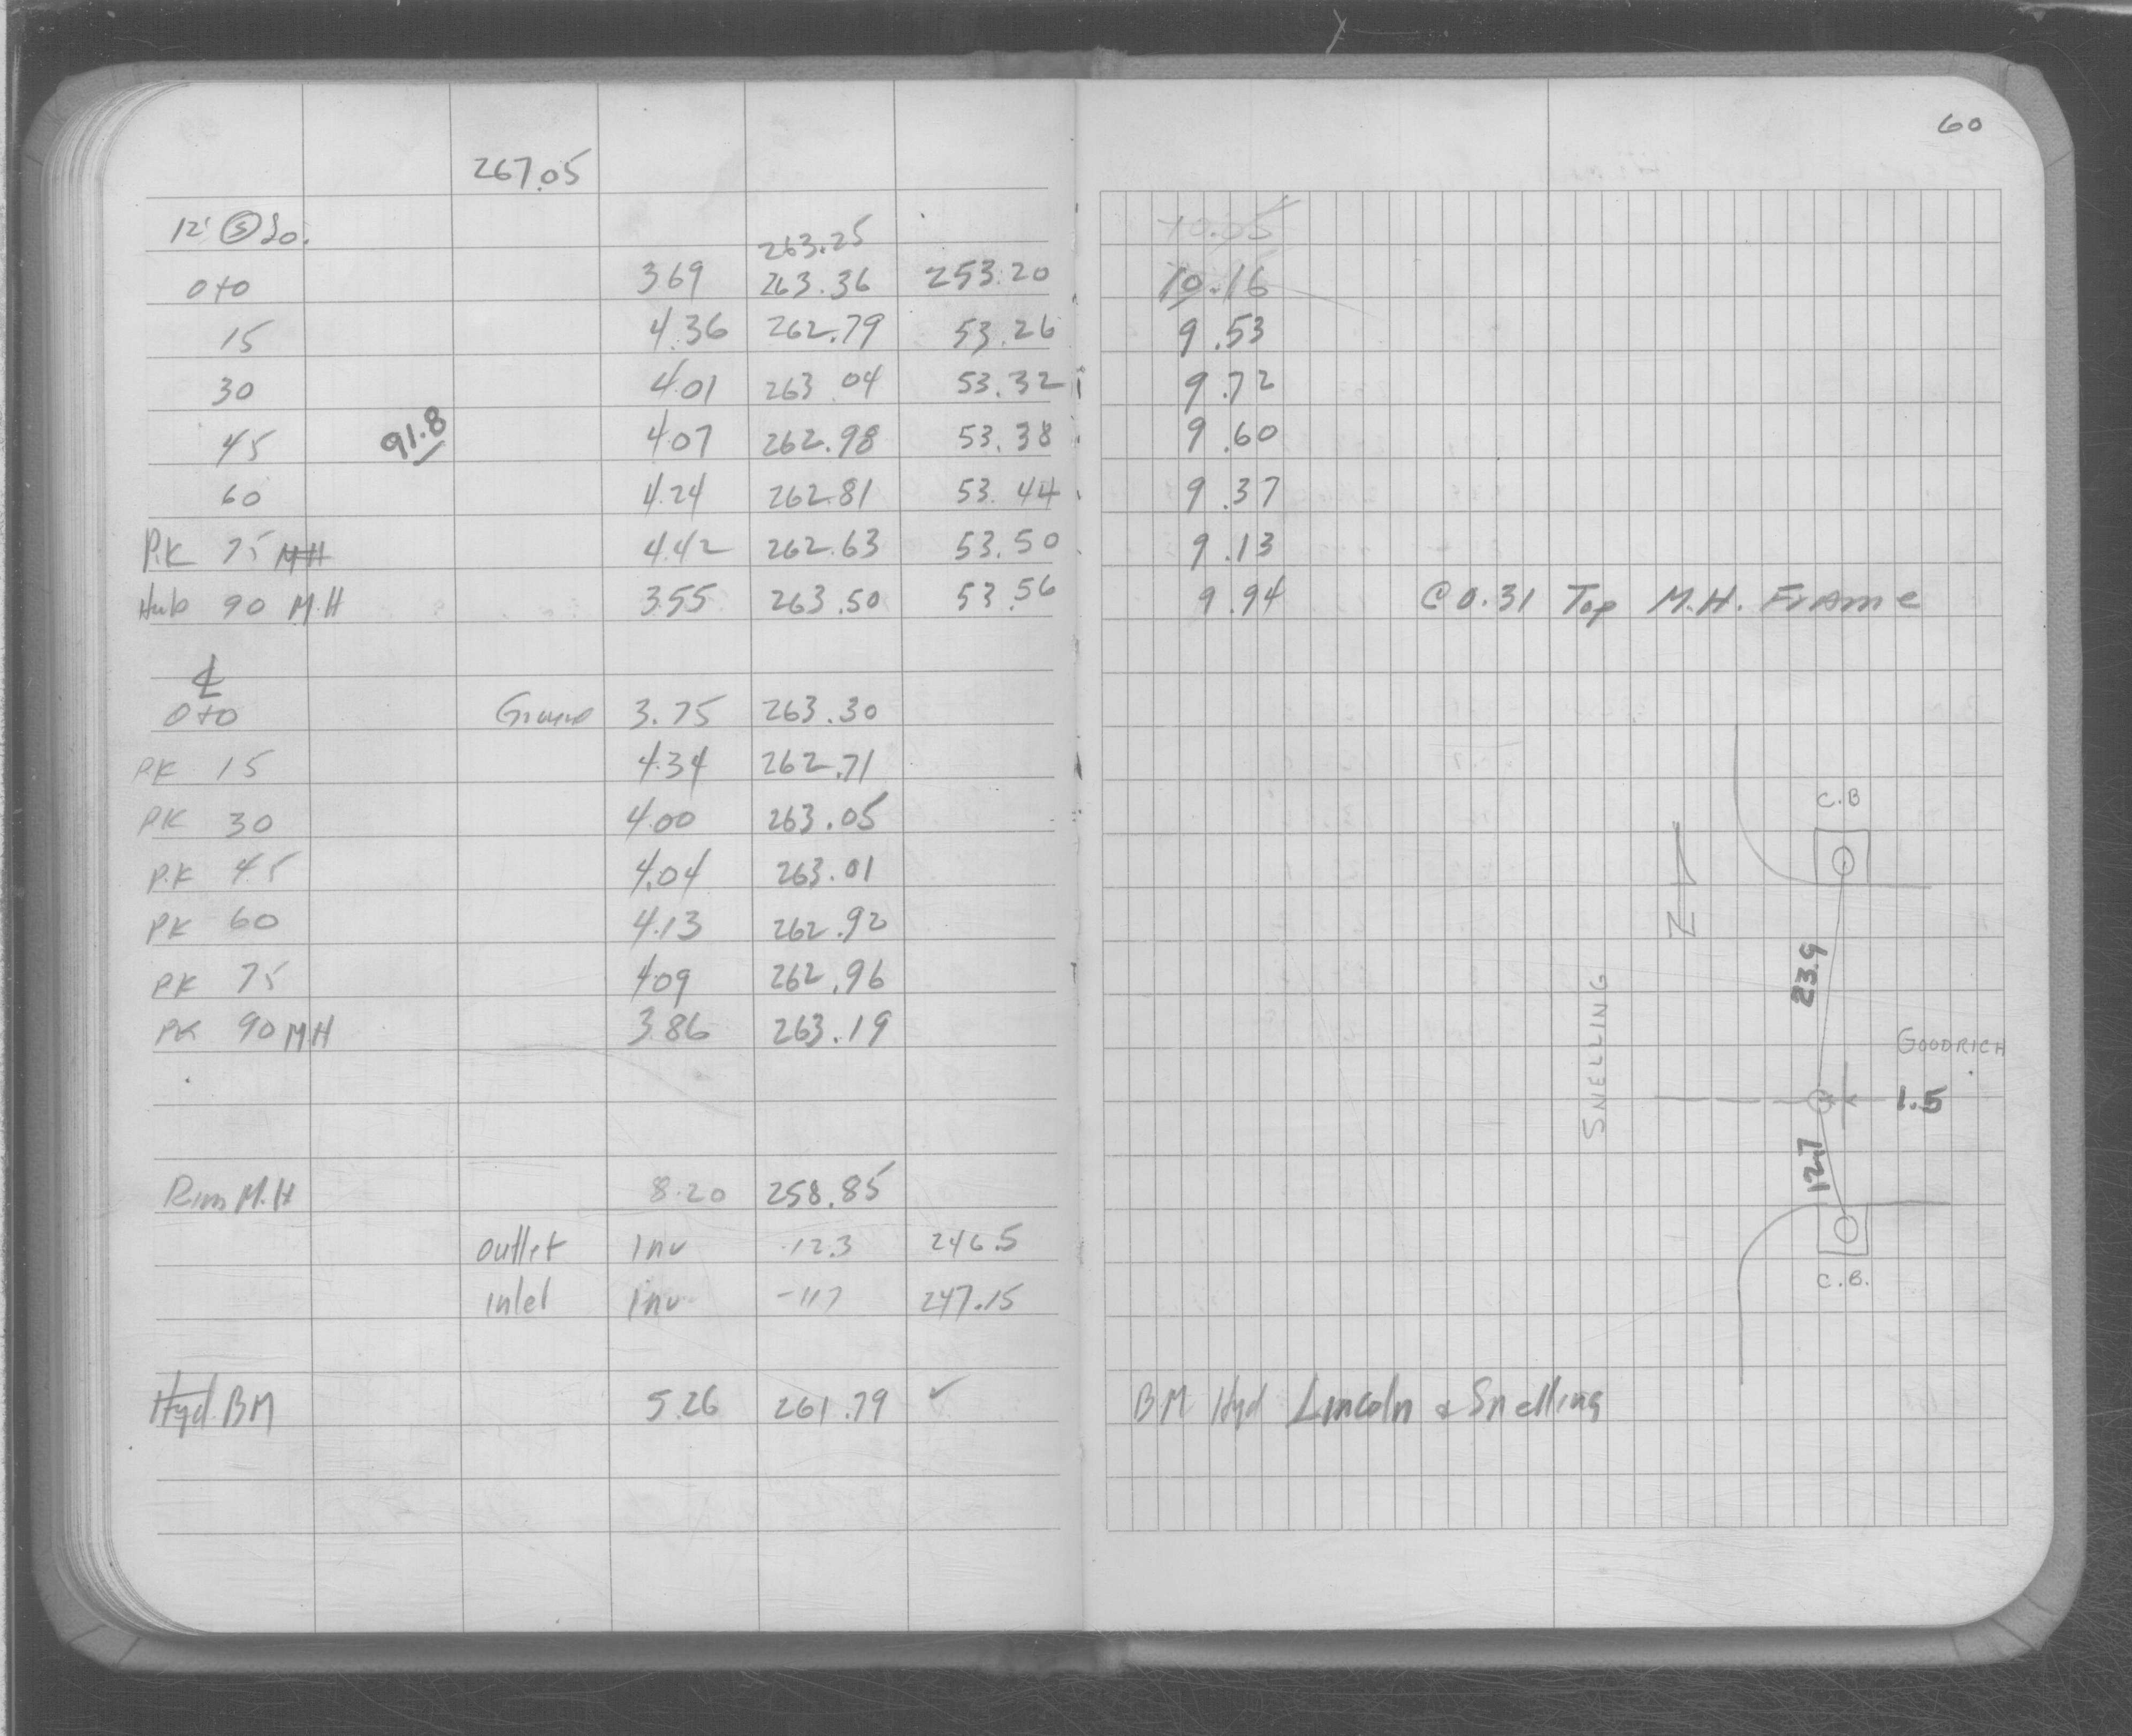 60
267.05
12' Ⓢ So.
263.25 10.05
0+0 3.69 263.36 253.20 10.16
15 4.36 262.79 53.26 9.53
30 4.01 263.04 53.32 9.72
45 91.8 4.07 262.98 53.38 9.60
60 4.24 262.81 53.44 9.37
P.K 75 MH 4.42 262.63 53.50 9.13
Hub 90 M.H 3.55 263.50 53.56 9.94 C 0.31 Top M.H. Frame
℄
0+0 Ground 3.75 263.30
PK 15 4.34 262.71
PK 30 4.00 263.05
P.K 45 4.04 263.01
PK 60 4.13 262.92
PK 75 4.09 262.96
PK 90 M.H 3.86 263.19
Rim M.H 8.20 258.85
outlet Inv -12.3 246.5
inlet Inv -11.7 247.15
Hyd. BM 5.26 261.79 ✓ BM Hyd Lincoln & Snelling
C.B
N
23.9
SNELLING
GOODRICH
1.5
12.7
C.B.